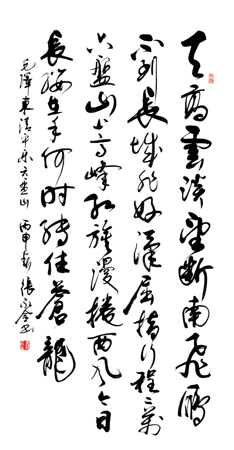 天高雲淡望斷南飛鴈
不到長城非好漢屈指行程二萬
六盤山上高峰紅旗漫捲西風今日
長纓在手何時縛住蒼龍
毛澤東清平樂六盤山 丙申 張書